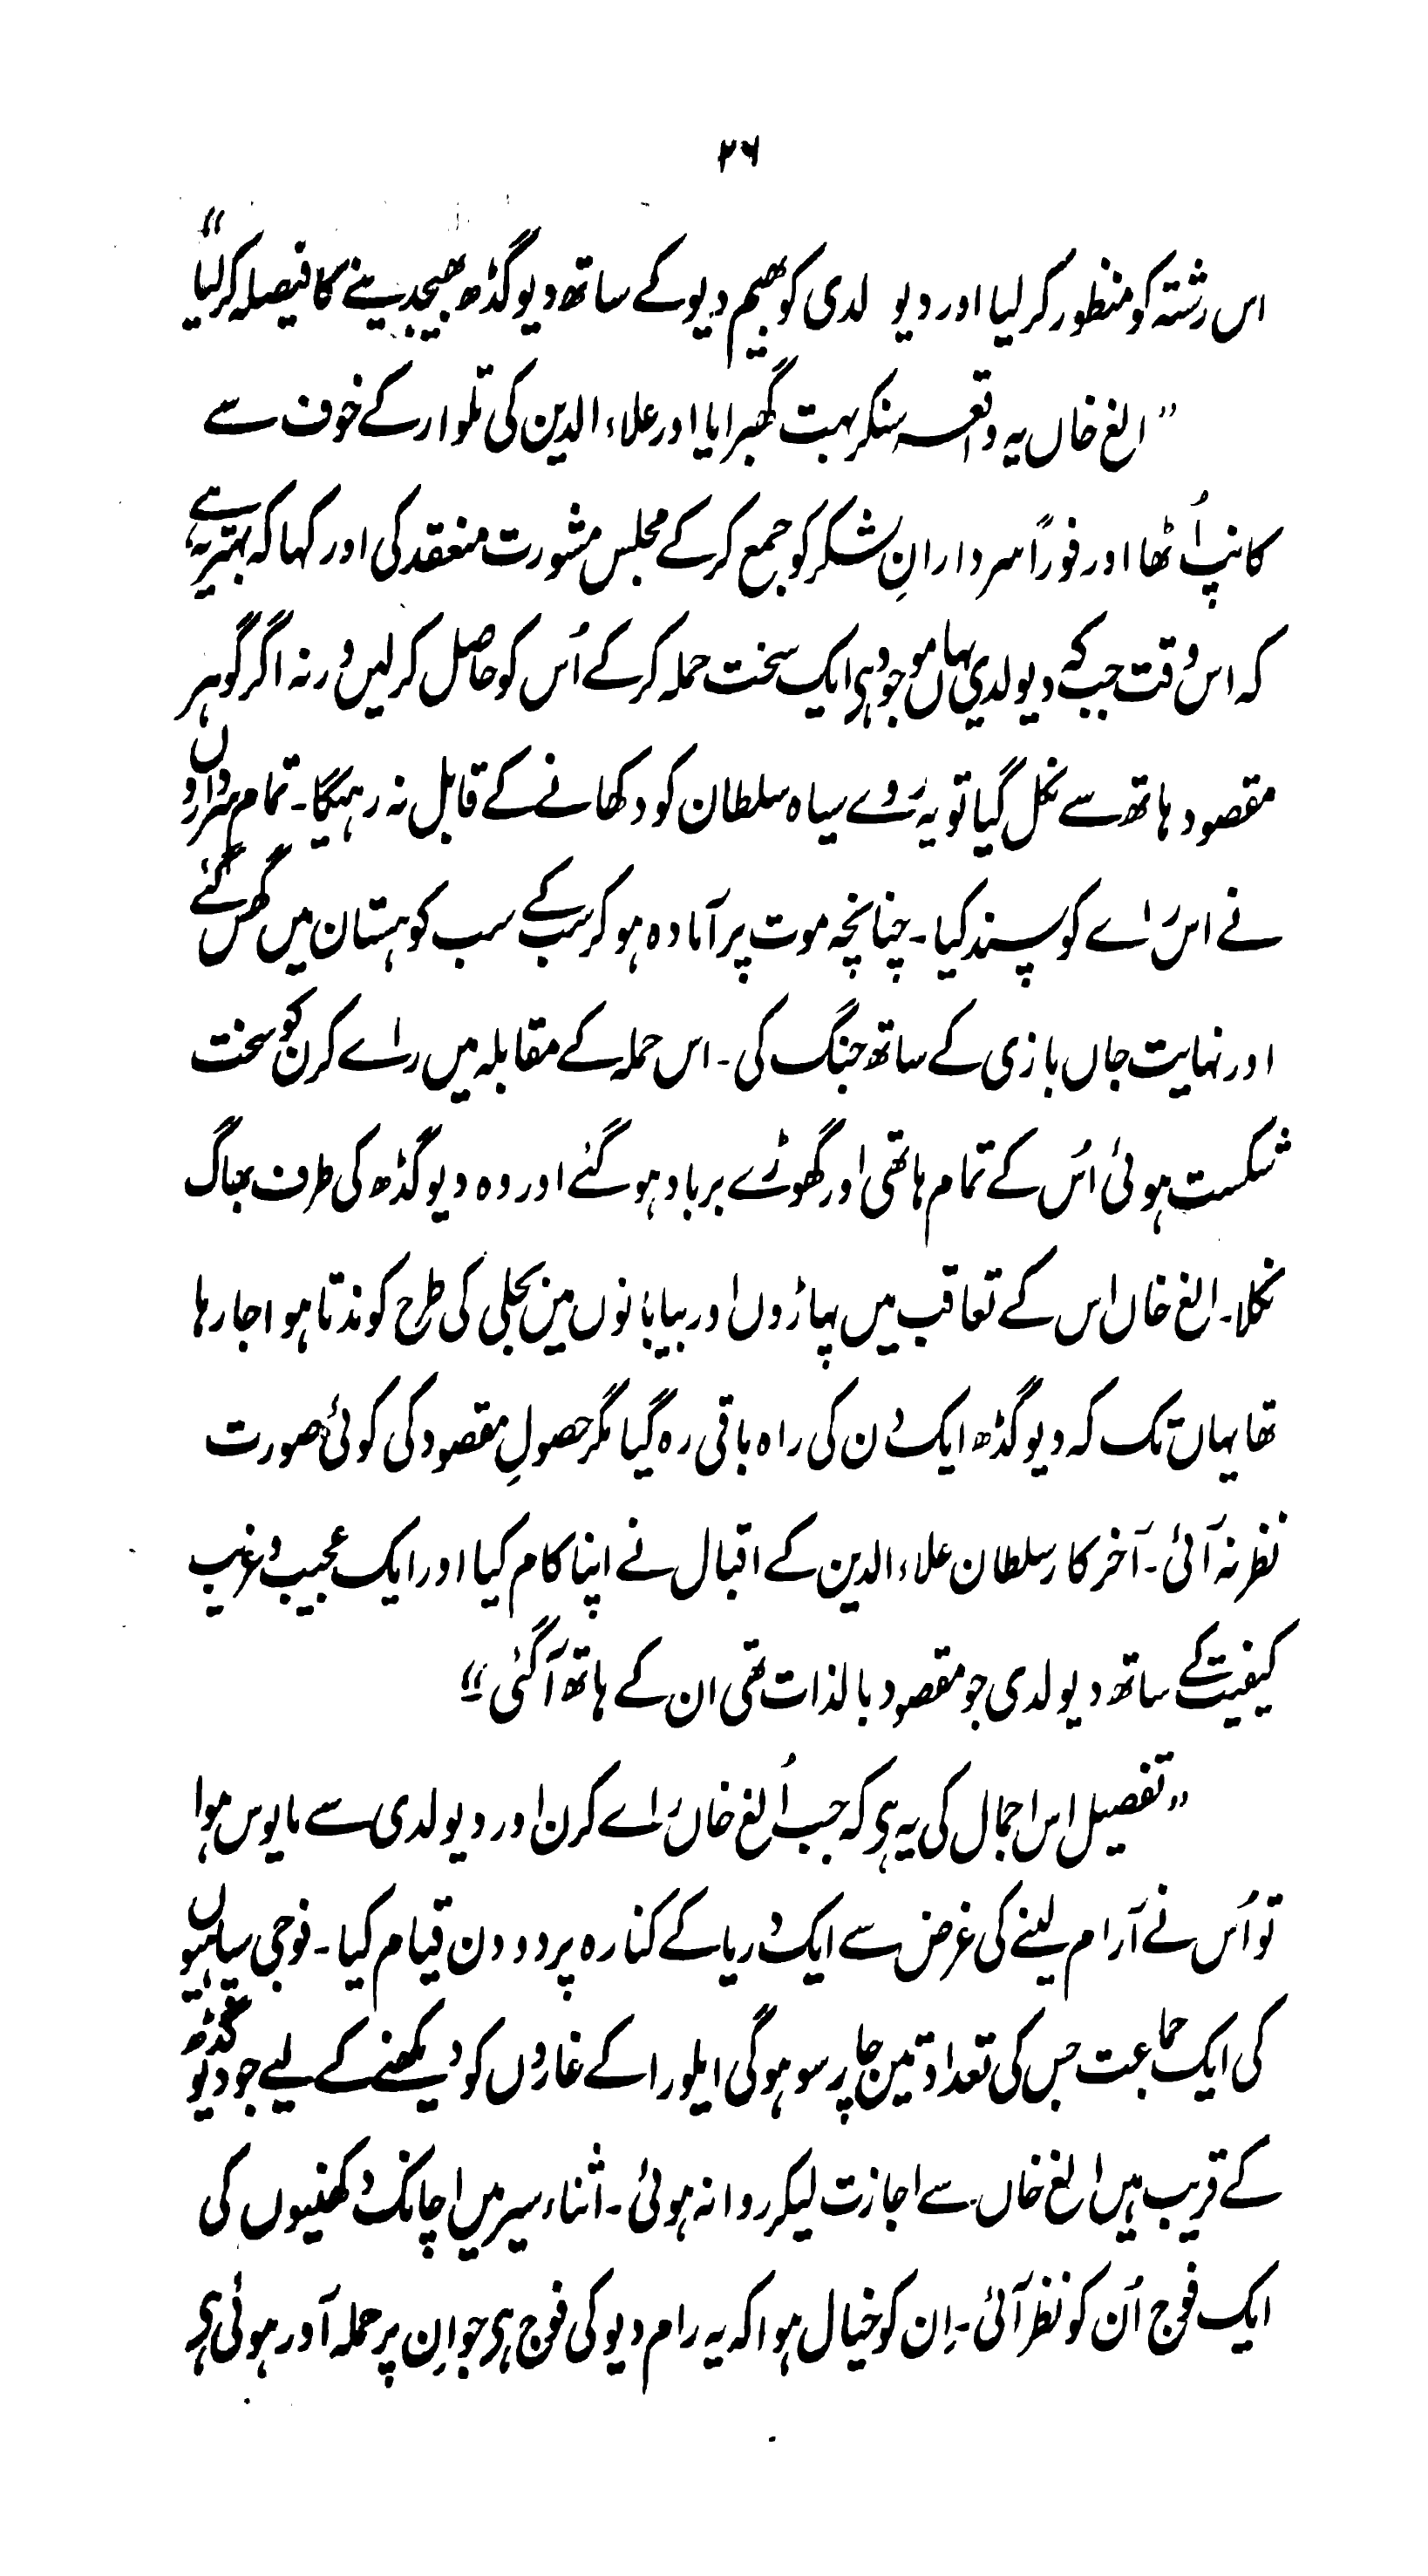 ۲۶
اس رشتہ کو منظور کر لیا اور دیو لدی کو بھیم دیو کے ساتھ دیوگڈھ بھیجدینے کا فیصلہ کر لیا"
"الغ خاں یہ واقعہ سنکر بہت گھبرایا اور علاء الدین کی تلوار کے خوف سے
کانپ اُٹھا اور فوراً سردارانِ لشکر کو جمع کر کے مجلس مشورت منعقد کی اور کہا کہ بہتر یہ ہے
کہ اس وقت جب کہ دیولدی یہاں موجود ہی ایک سخت حملہ کر کے اُس کو حاصل کر لیں ورنہ اگر گوہر
مقصود ہاتھ سے نکل گیا تو یہ رُوے سیاہ سلطان کو دکھانے کے قابل نہ رہیگا۔ تمام سرداروں
نے اس رائے کو پسند کیا۔ چنانچہ موت پر آمادہ ہو کر سب کے سب کوہستان میں گھس گئے
اور نہایت جاں بازی کے ساتھ جنگ کی۔ اس حملہ کے مقابلہ میں راے کرن کو سخت
شکست ہوئی اُس کے تمام ہاتھی اور گھوڑے برباد ہو گئے اور وہ دیوگڈھ کی طرف بھاگ
نکلا۔ الغ خاں اس کے تعاقب میں پہاڑوں اور بیابانوں میں بجلی کی طرح کوندتا ہوا جا رہا
تھا یہاں تک کہ دیوگڈھ ایک دن کی راہ باقی رہ گیا مگر حصولِ مقصود کی کوئی صورت
نظر نہ آئی۔ آخر کار سلطان علاء الدین کے اقبال نے اپنا کام کیا اور ایک عجیب و غریب
کیفیت کے ساتھ دیولدی جو مقصود بالذات تھی ان کے ہاتھ آ گئی"
"تفصیل اس اجمال کی یہ ہی کہ جب اُلغ خاں راے کرن اور دیولدی سے مایوس ہوا
تو اُس نے آرام لینے کی غرض سے ایک دریا کے کنارہ پر دو دن قیام کیا۔ فوجی سپاہیوں
کی ایک جماعت جس کی تعداد تین چار سو ہوگی ایلورا کے غاروں کو دیکھنے کے لیے جو دیوگڈھ
کے قریب ہیں الغ خاں سے اجازت لیکر روانہ ہوئی۔ اثناء سیر میں اچانک دکھنیوں کی
ایک فوج اُن کو نظر آئی۔ اِن کو خیال ہوا کہ یہ رام دیو کی فوج ہی جو اِن پر حملہ آور ہوئی ہی